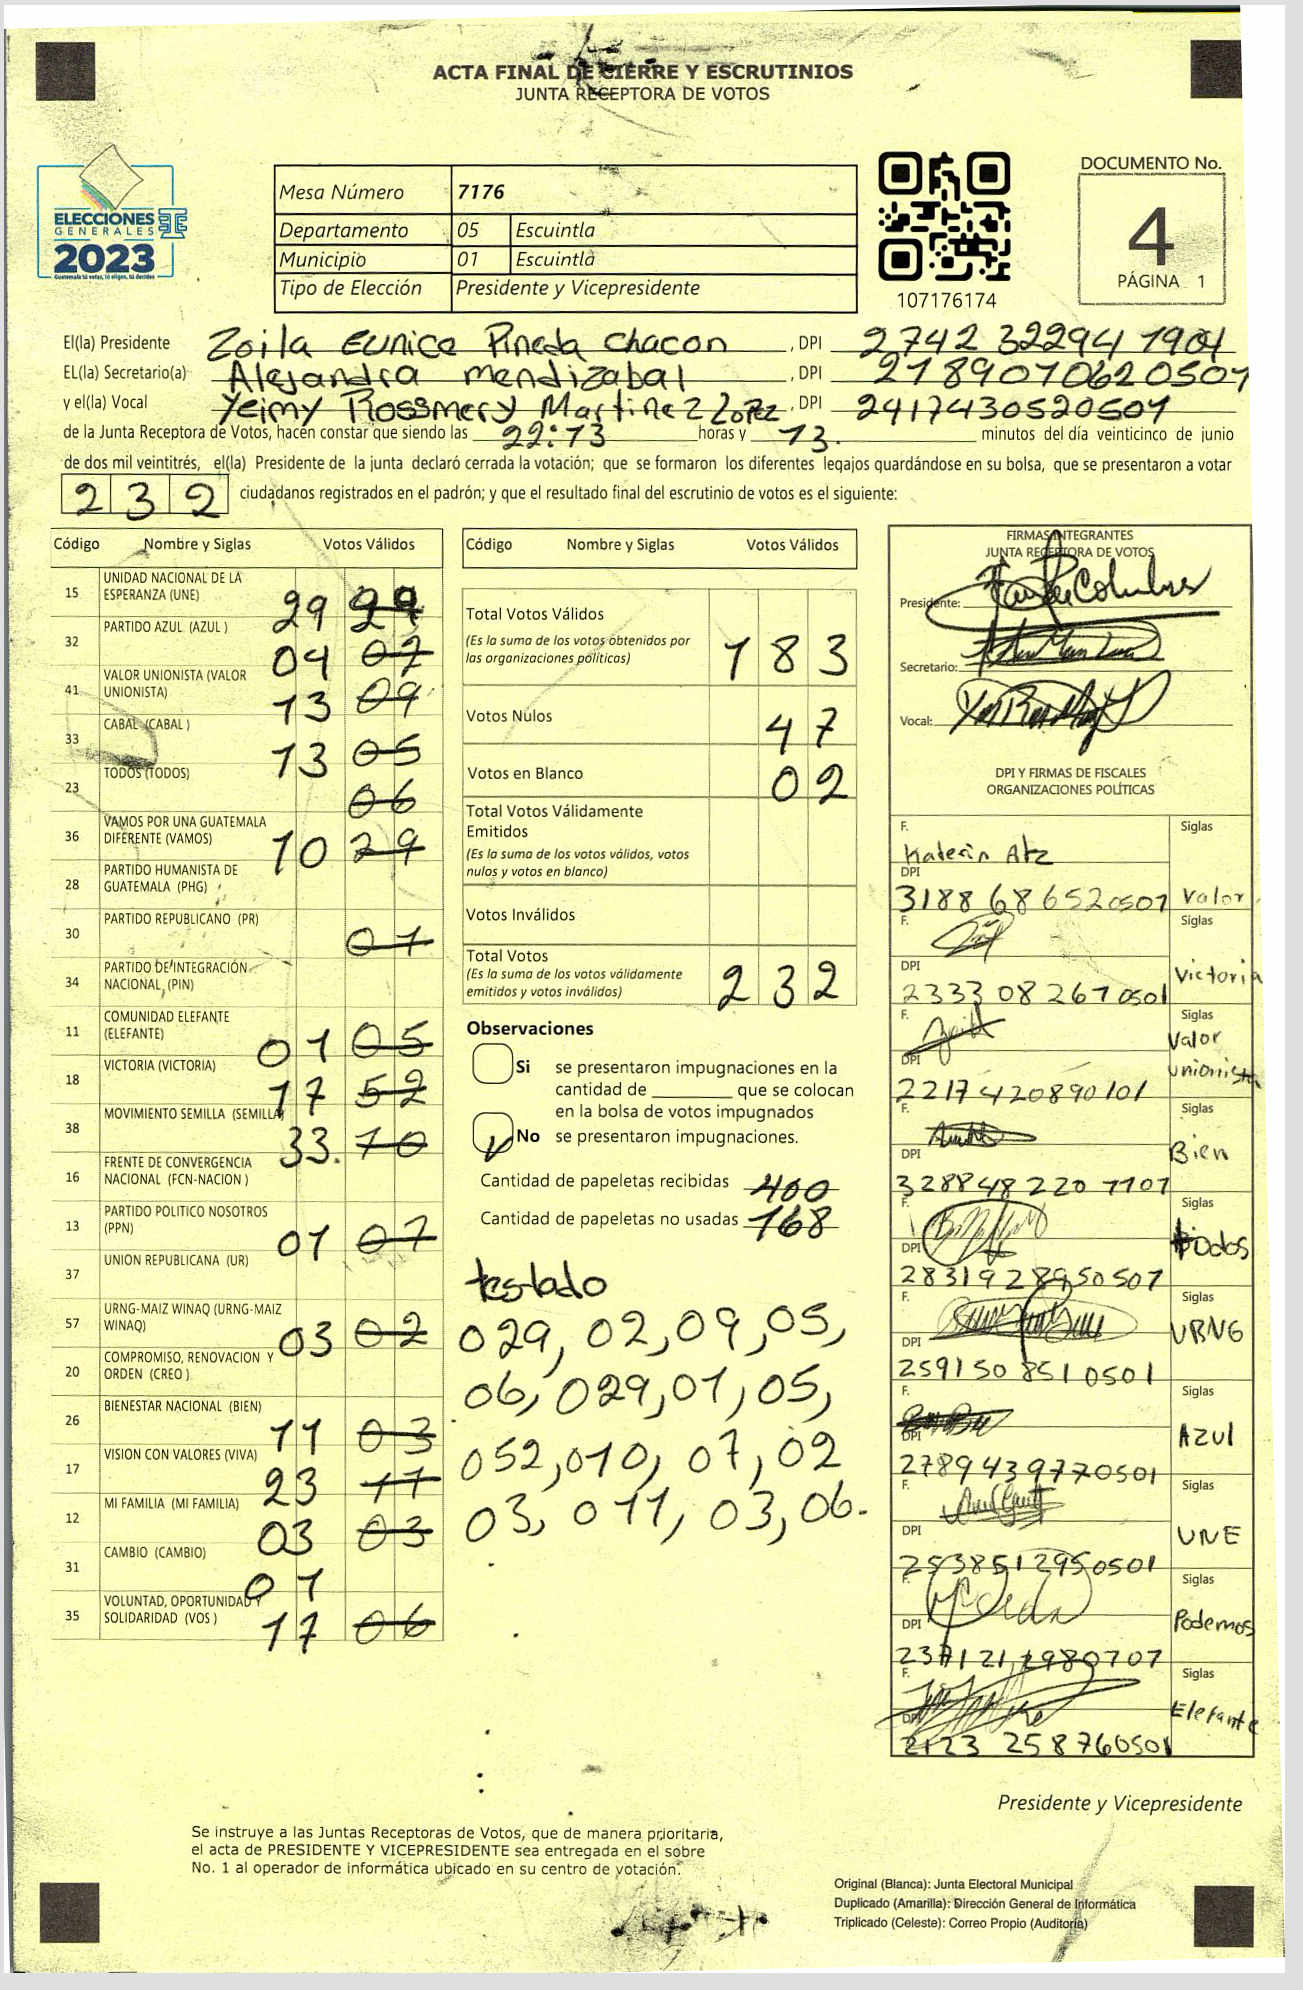 ACTA FINAL DE CIERRE Y ESCRUTINIOS
JUNTA RECEPTORA DE VOTOS
ELECCIONES
GENERALES
2023
Guatemala tú votas, tú eliges, tú decides
Mesa Número 7176
Departamento 05 Escuintla
Municipio 01 Escuintla
Tipo de Elección Presidente y Vicepresidente
107176174
DOCUMENTO No.
4
PÁGINA 1
El(la) Presidente Zoila Eunice Pineda Chacon , DPI 2742 32294 1901
EL(la) Secretario(a) Alejandra mendizabal , DPI 2789070620507
y el(la) Vocal Yeimy Rossmery Martinez Lopez , DPI 2417430520501
de la Junta Receptora de Votos, hacen constar que siendo las 22:13 horas y 13. minutos del día veinticinco de junio
de dos mil veintitrés, el(la) Presidente de la junta declaró cerrada la votación; que se formaron los diferentes legajos quardándose en su bolsa, que se presentaron a votar
232 ciudadanos registrados en el padrón; y que el resultado final del escrutinio de votos es el siguiente:
Código Nombre y Siglas Votos Válidos
15 UNIDAD NACIONAL DE LA
ESPERANZA (UNE) 29 29
32 PARTIDO AZUL (AZUL ) 04 02
41 VALOR UNIONISTA (VALOR
UNIONISTA) 13 09
33 CABAL (CABAL ) 13 05
23 TODOS (TODOS) 06
36 VAMOS POR UNA GUATEMALA
DIFERENTE (VAMOS) 10 29
28 PARTIDO HUMANISTA DE
GUATEMALA (PHG)
30 PARTIDO REPUBLICANO (PR) 01
34 PARTIDO DE INTEGRACIÓN
NACIONAL (PIN)
11 COMUNIDAD ELEFANTE
(ELEFANTE) 01 05
18 VICTORIA (VICTORIA) 17 52
38 MOVIMIENTO SEMILLA (SEMILLA) 33. 10
16 FRENTE DE CONVERGENCIA
NACIONAL (FCN-NACION )
13 PARTIDO POLITICO NOSOTROS
(PPN) 01 07
37 UNION REPUBLICANA (UR)
57 URNG-MAIZ WINAQ (URNG-MAIZ
WINAQ) 03 02
20 COMPROMISO, RENOVACION Y
ORDEN (CREO )
26 BIENESTAR NACIONAL (BIEN) 11 03
17 VISION CON VALORES (VIVA) 23 11
12 MI FAMILIA (MI FAMILIA) 03 03
31 CAMBIO (CAMBIO) 01
35 VOLUNTAD, OPORTUNIDAD Y
SOLIDARIDAD (VOS ) 17 06
Código Nombre y Siglas Votos Válidos
Total Votos Válidos
(Es la suma de los votos obtenidos por
las organizaciones políticas) 183
Votos Nulos 47
Votos en Blanco 02
Total Votos Válidamente
Emitidos
(Es la suma de los votos válidos, votos
nulos y votos en blanco)
Votos Inválidos
Total Votos
(Es la suma de los votos válidamente
emitidos y votos inválidos) 232
Observaciones
Si se presentaron impugnaciones en la
cantidad de ________ que se colocan
en la bolsa de votos impugnados
No se presentaron impugnaciones.
Cantidad de papeletas recibidas 400
Cantidad de papeletas no usadas 168
testado
029, 02, 09, 05,
06, 029, 01, 05,
052, 010, 07, 02
03, 011, 03, 06.
FIRMAS INTEGRANTES
JUNTA RECEPTORA DE VOTOS
Presidente:
Secretario:
Vocal:
DPI Y FIRMAS DE FISCALES
ORGANIZACIONES POLÍTICAS
F. Katerin Atz Siglas
DPI
3188 68 652 0501 Valor
F. Siglas
DPI Victoria
2333 08 267 0501
F. Siglas
Valor
DPI unionista
2217420890101
F. Siglas
DPI Bien
328848220 1101
F. Siglas
DPI todos
2831928950507
F. Siglas
DPI URNG
259150 851 0501
F. Siglas
DPI AZUl
2789439770501
F. Siglas
DPI UNE
2538512950501
F. Siglas
DPI Podemos
2371212980707
F. Siglas
DPI Elefante
2123 258760501
Presidente y Vicepresidente
Se instruye a las Juntas Receptoras de Votos, que de manera prioritaria,
el acta de PRESIDENTE Y VICEPRESIDENTE sea entregada en el sobre
No. 1 al operador de informática ubicado en su centro de votación.
Original (Blanca): Junta Electoral Municipal
Duplicado (Amarilla): Dirección General de Informática
Triplicado (Celeste): Correo Propio (Auditoría)